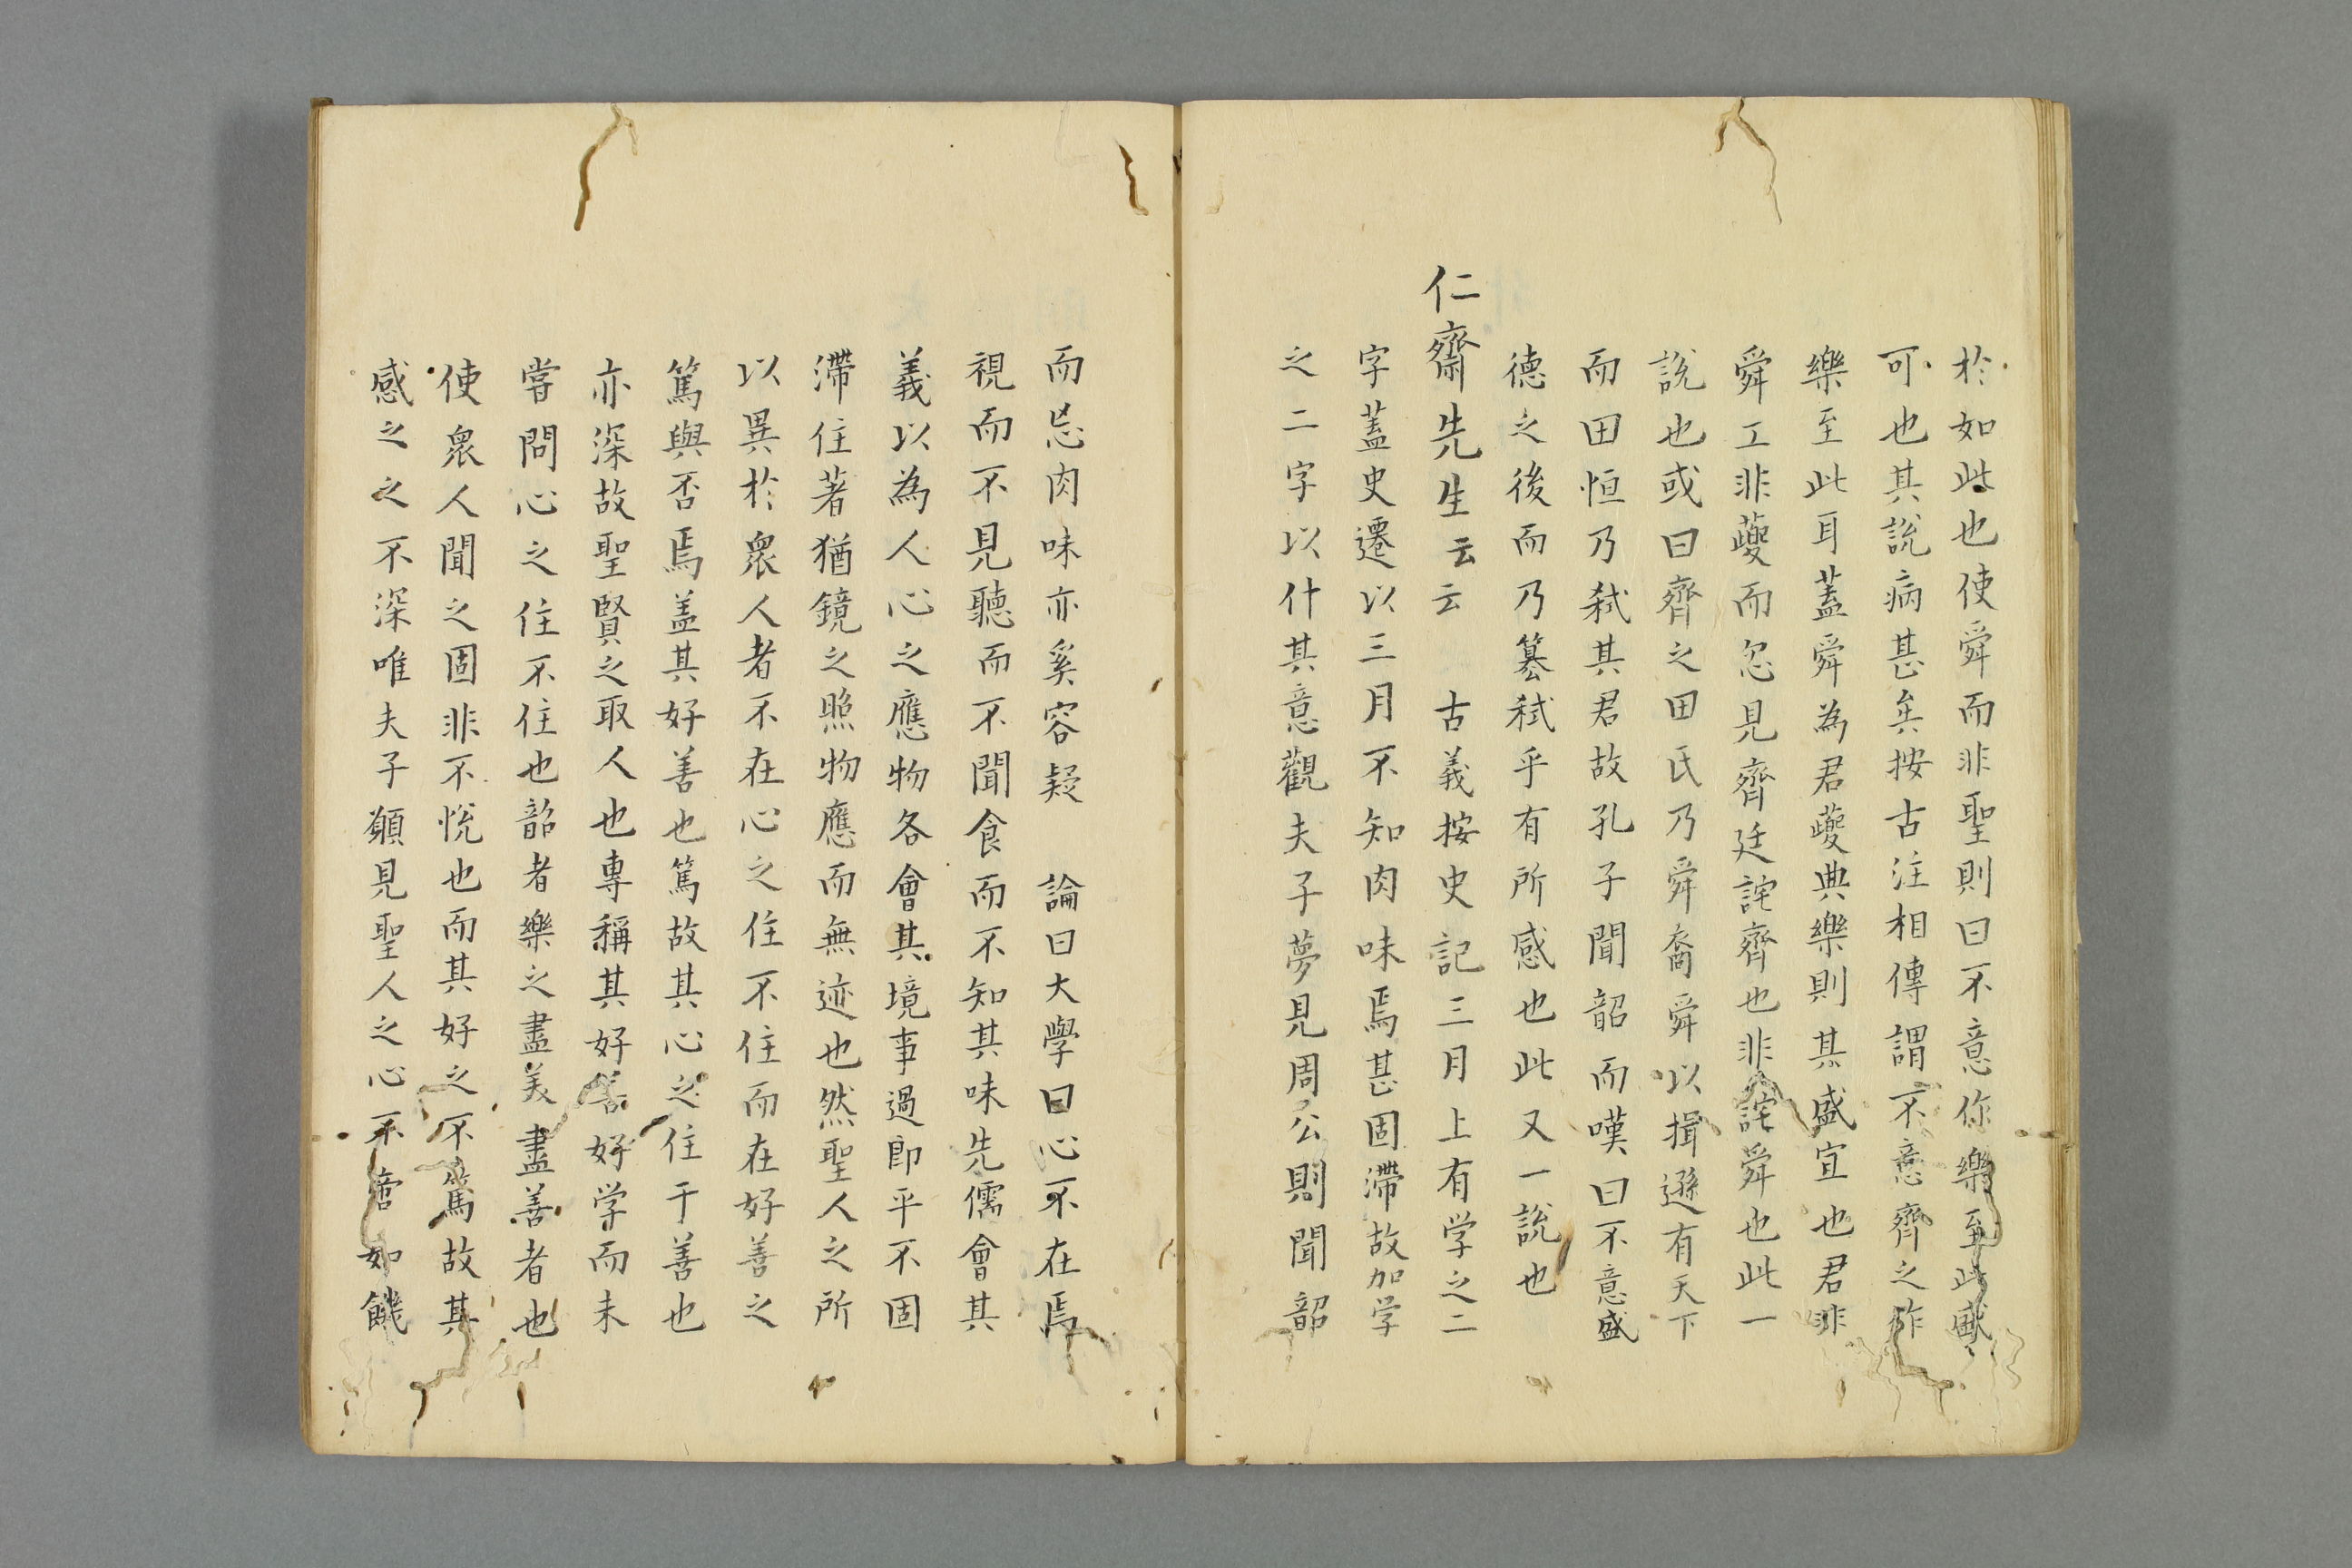 於如此也使舜而非聖則曰不意你樂至此感
可也其說病甚矣按古注相傳謂不意齊之作
樂至此耳蓋舜為君夔典樂則其盛宜也君非
舜工非夔而忽見齊廷詫齊也非詫舜也此一
說也或曰齊之田氏乃舜裔舜以揖遜有天下
而田恒乃弒其君故孔子聞韶而嘆曰不意盛
德之後而乃簒弒乎有所感也此又一說也
仁齋先生云云 古義按史記三月上有学之二
字蓋史遷以三月不知肉味焉甚固滯故加学
之二字以什其意觀夫子夢見周公則聞韶
而忘肉味亦奚容疑 論曰大學曰心不在焉
視而不見聽而不聞食而不知其味先儒會其
義以為人心之應物各會其境事過即平不固
滯住著猶鏡之照物應而無迹也然聖人之所
以異於衆人者不在心之住不住而在好善之
篤與否焉盖其好善也篤故其心之住于善也
亦深故聖賢之取人也專稱其好善好学而未
嘗問心之住不住也韶者樂之盡美盡善者也
使衆人聞之固非不悅也而其好之不篤故其
感之之不深唯夫子願見聖人之心不啻如饑